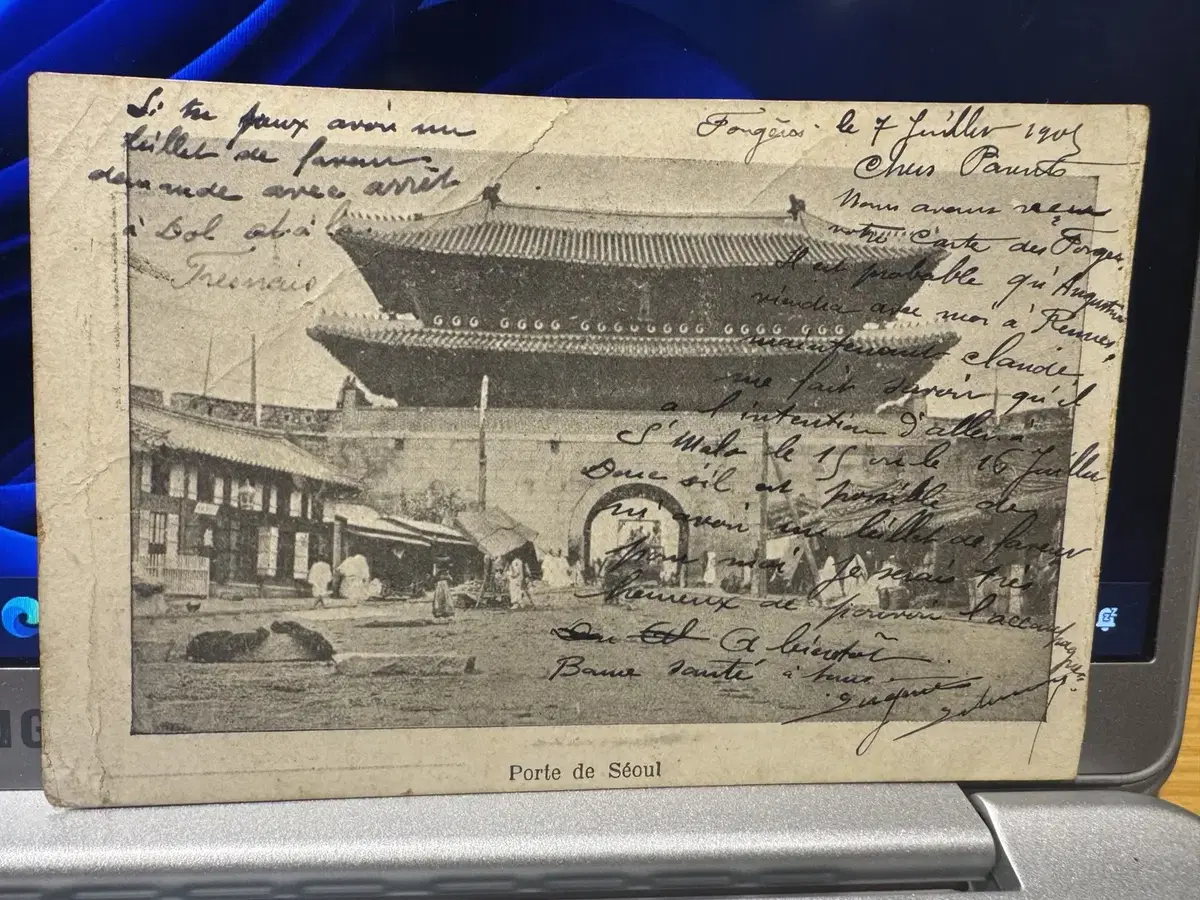 Fougères le 7 Juillet 1905
Chers Parents
Nous avons reçu
votre Carte des Forges.
Il est probable qu'Augustine
viendra avec moi à Rennes,
maintenant Claude
me fait savoir qu'il
a l'intention d'aller à
St Malo le 15 ou le 16 Juillet
Donc s'il est possible de
m'avoir un billet de faveur
pour moi je serais très
heureux de pouvoir l'accompagner.
A bientôt
Bonne santé à tous
Eugène
Si tu peux avoir un
billet de faveur
demande avec arrêt
à Dol et à la
Fresnais
Porte de Séoul